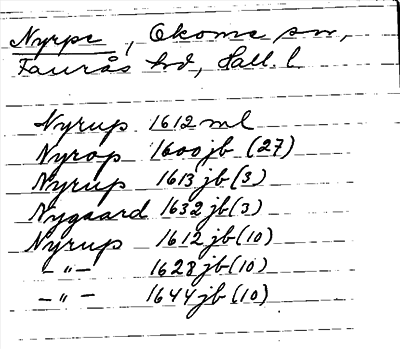 Nyrpe, Okome sn,
Faurås hd, Hall. l.
Nyrup 1612 ml
Nyrop 1600 jb (27)
Nyrup 1613 jb (3)
Nygaard 1632 jb (3)
Nyrup 1612 jb (10)
–"– 1628 jb (10)
–"– 1644 jb (10)